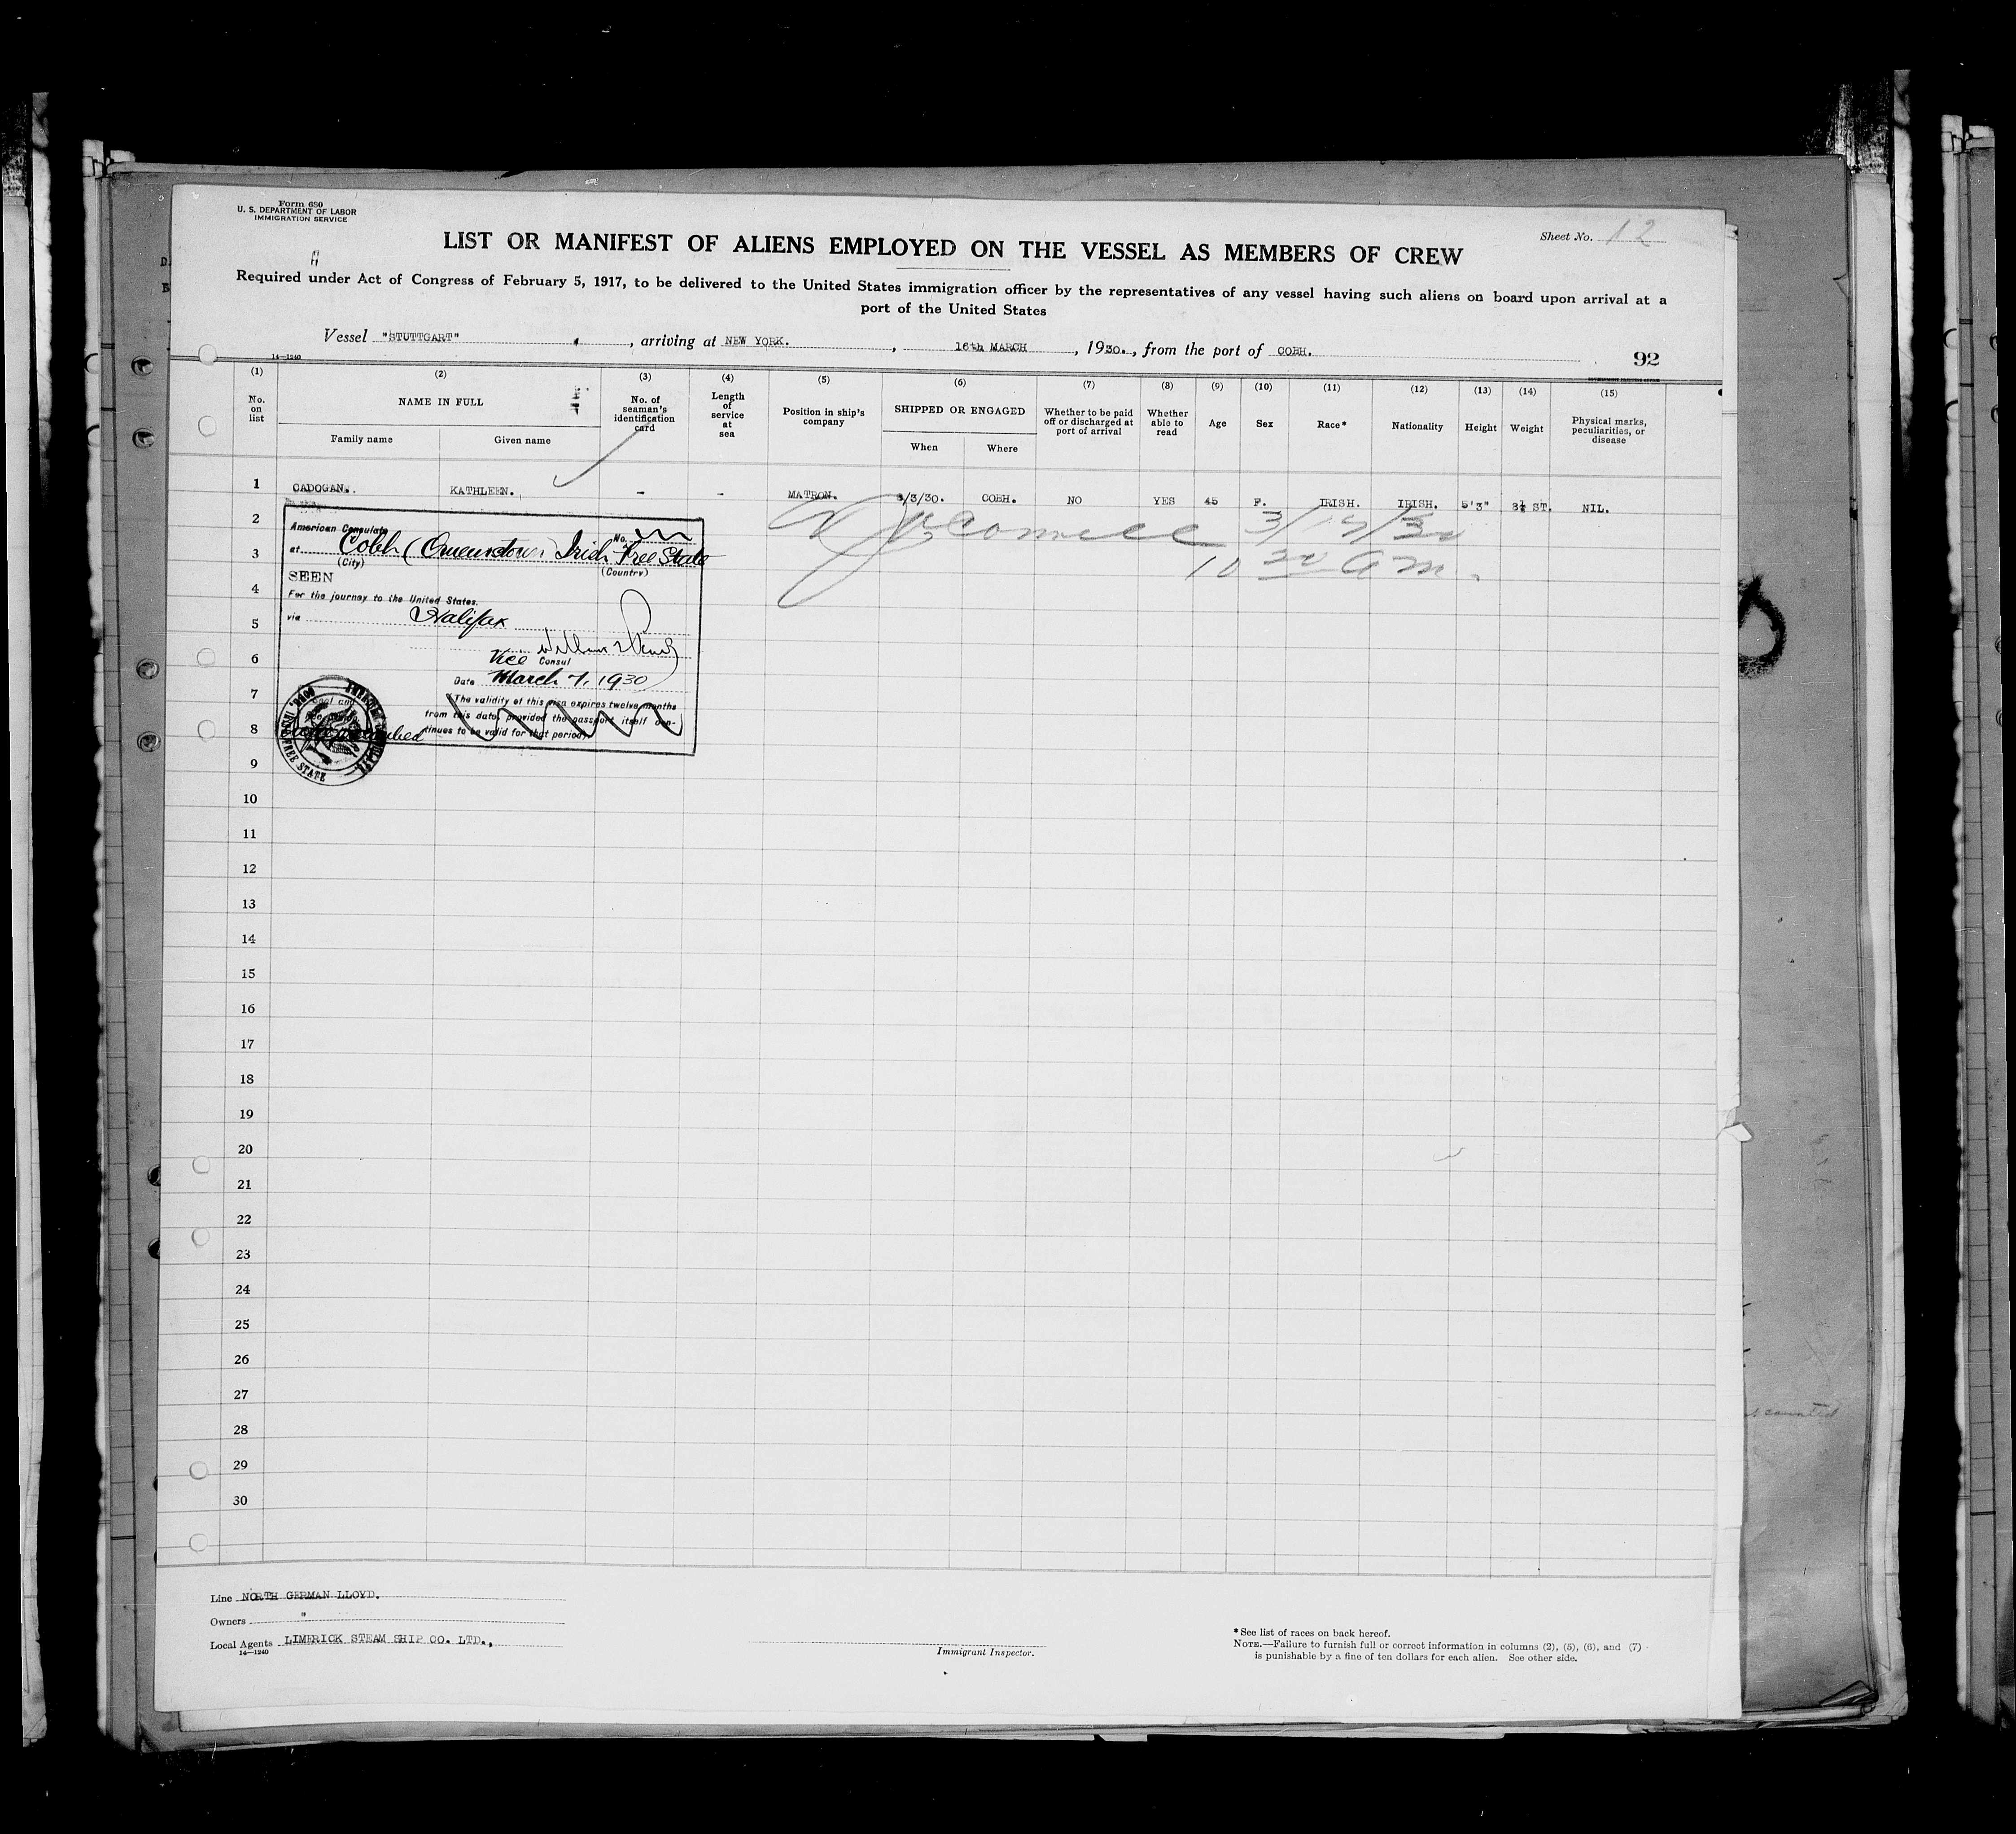 Form 680
U. S. DEPARTMENT OF LABOR
IMMIGRATION SERVICE
Sheet No. 12
LIST OR MANIFEST OF ALIENS EMPLOYED ON THE VESSEL AS MEMBERS OF CREW
Required under Act of Congress of February 5, 1917, to be delivered to the United States immigration officer by the representatives of any vessel having such aliens on board upon arrival at a
port of the United States
Vessel "STUTTGART", arriving at NEW YORK., 16th MARCH, 1930., from the port of COBH.
14—1240
92
(1) (2) (3) (4) (5) (6) (7) (8) (9) (10) (11) (12) (13) (14) (15)
No. on list
NAME IN FULL
Family name
Given name
No. of seaman's identification card
Length of service at sea
Position in ship's company
SHIPPED OR ENGAGED
When
Where
Whether to be paid off or discharged at port of arrival
Whether able to read
Age
Sex
Race*
Nationality
Height
Weight
Physical marks, peculiarities, or disease
1 CADOGAN. KATHLEEN. - - MATRON. /3/30. COBH. NO YES 45 F. IRISH. IRISH. 5'3" 8½ ST. NIL.
2
3
4
5
6
7
8
9
10
11
12
13
14
15
16
17
18
19
20
21
22
23
24
25
26
27
28
29
30
10 30 am.
American Consulate No.
at Cobh (Queenstown) Irish Free State
(City) (Country)
SEEN
For the journey to the United States.
via Halifax
Vice Consul
Date March 7, 1930
The validity of this visa expires twelve months
from this date, provided the passport itself con-
tinues to be valid for that period.
Line NORTH GERMAN LLOYD.
Owners "
Local Agents LIMERICK STEAM SHIP CO. LTD.,
14—1240
Immigrant Inspector.
*See list of races on back hereof.
NOTE.—Failure to furnish full or correct information in columns (2), (5), (6), and (7)
is punishable by a fine of ten dollars for each alien. See other side.